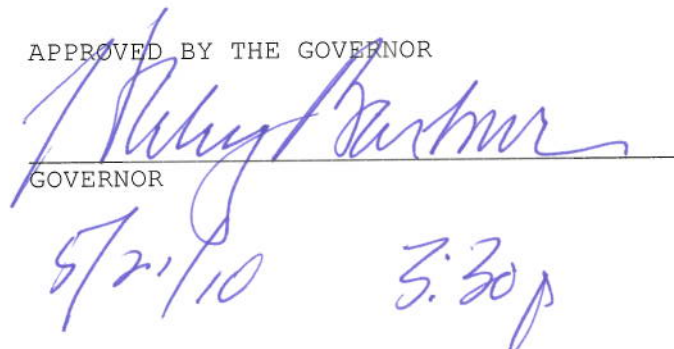 APPROVED BY THE GOVERNOR
Haley Barbour
GOVERNOR
5/21/10 3:30p